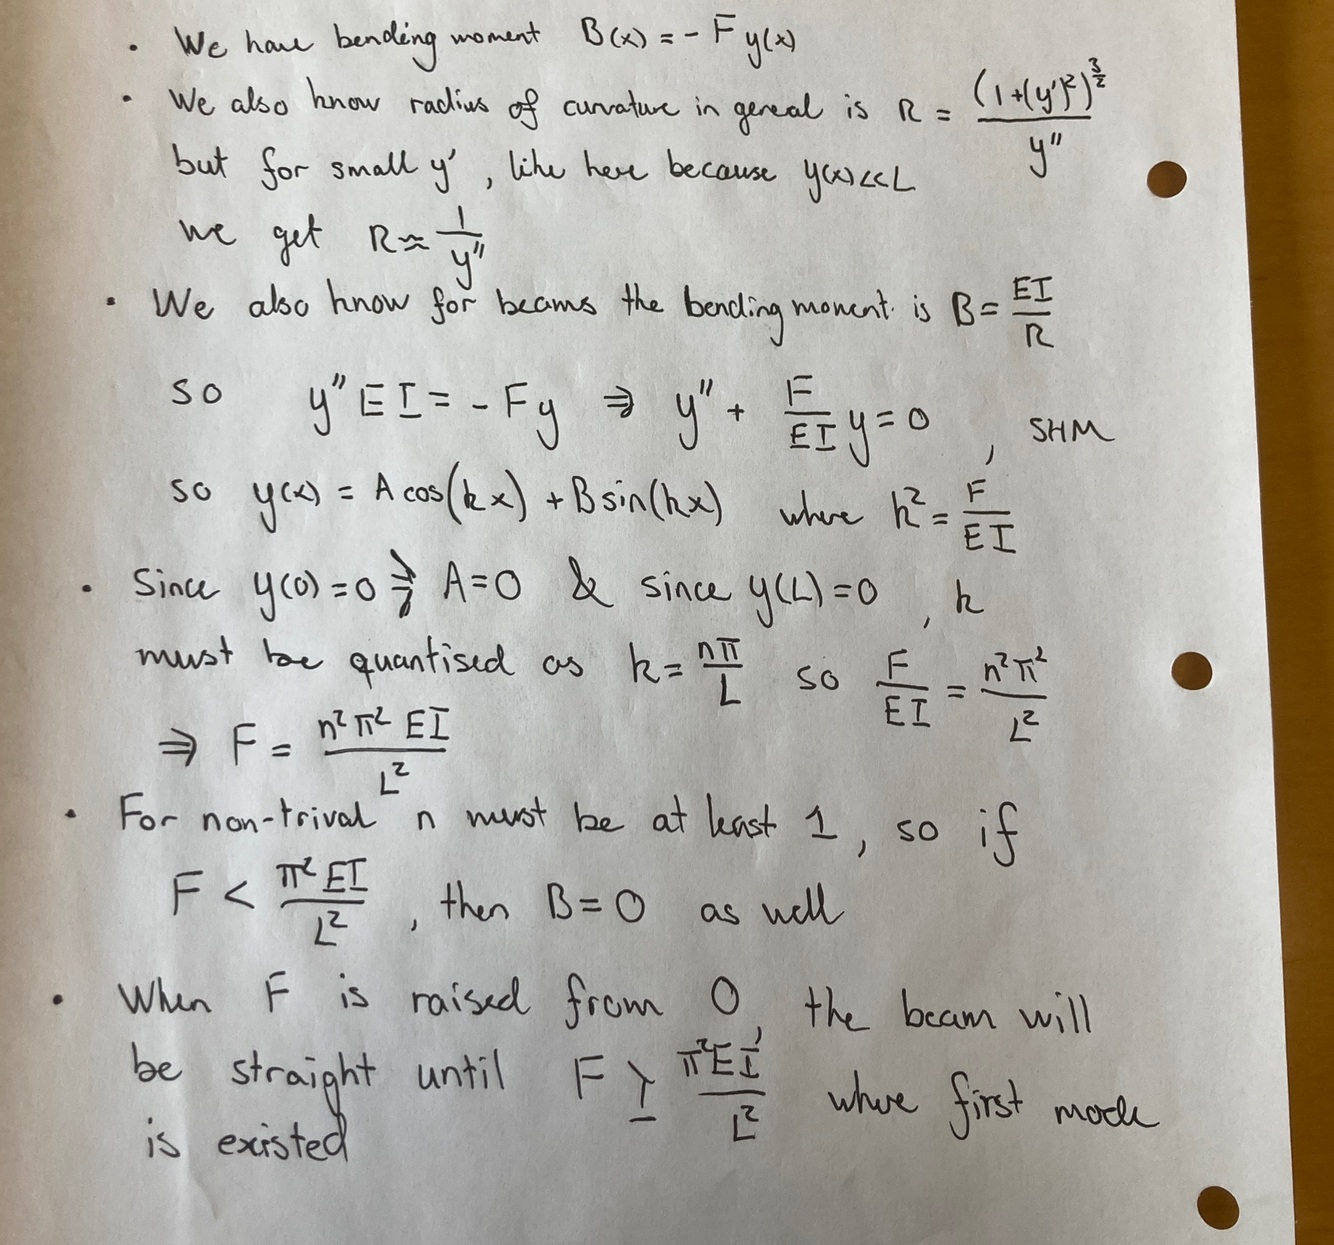 • We have bending moment B(x) = - F y(x)
• We also know radius of curvature in gereal is R = (1+(y')²)^(3/2) / y''
but for small y' , like here because y(x) << L
we get R ≈ 1/y''
• We also know for beams the bending moment is B = EI/R
so y'' EI = - Fy ⇒ y'' + F/EI y = 0 , SHM
so y(x) = A cos(kx) + B sin(kx) where k² = F/EI
• Since y(0) = 0 ⇒ A=0 & since y(L) = 0 , k
must be quantised as k = nπ/L so F/EI = n²π²/L²
⇒ F = n²π² EI / L²
• For non-trival n must be at least 1, so if
F < π² EI / L² , then B = 0 as well
• When F is raised from 0, the beam will
be straight until F ≥ π² EI / L² where first mode
is existed